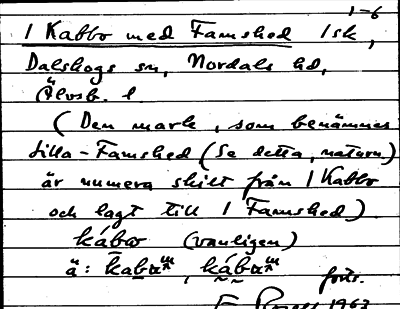 1-6
1 Kabbo med Famshed 1sk,
Dalskogs sn, Nordals hd,
Älvsb. l.
(Den mark, som benämnes
Lilla-Famshed (Se detta, naturn)
är numera skilt från 1 Kabbo
och lagt till 1 Famshed)
kábω (vanligen)
ä: kabω
forts.
1963